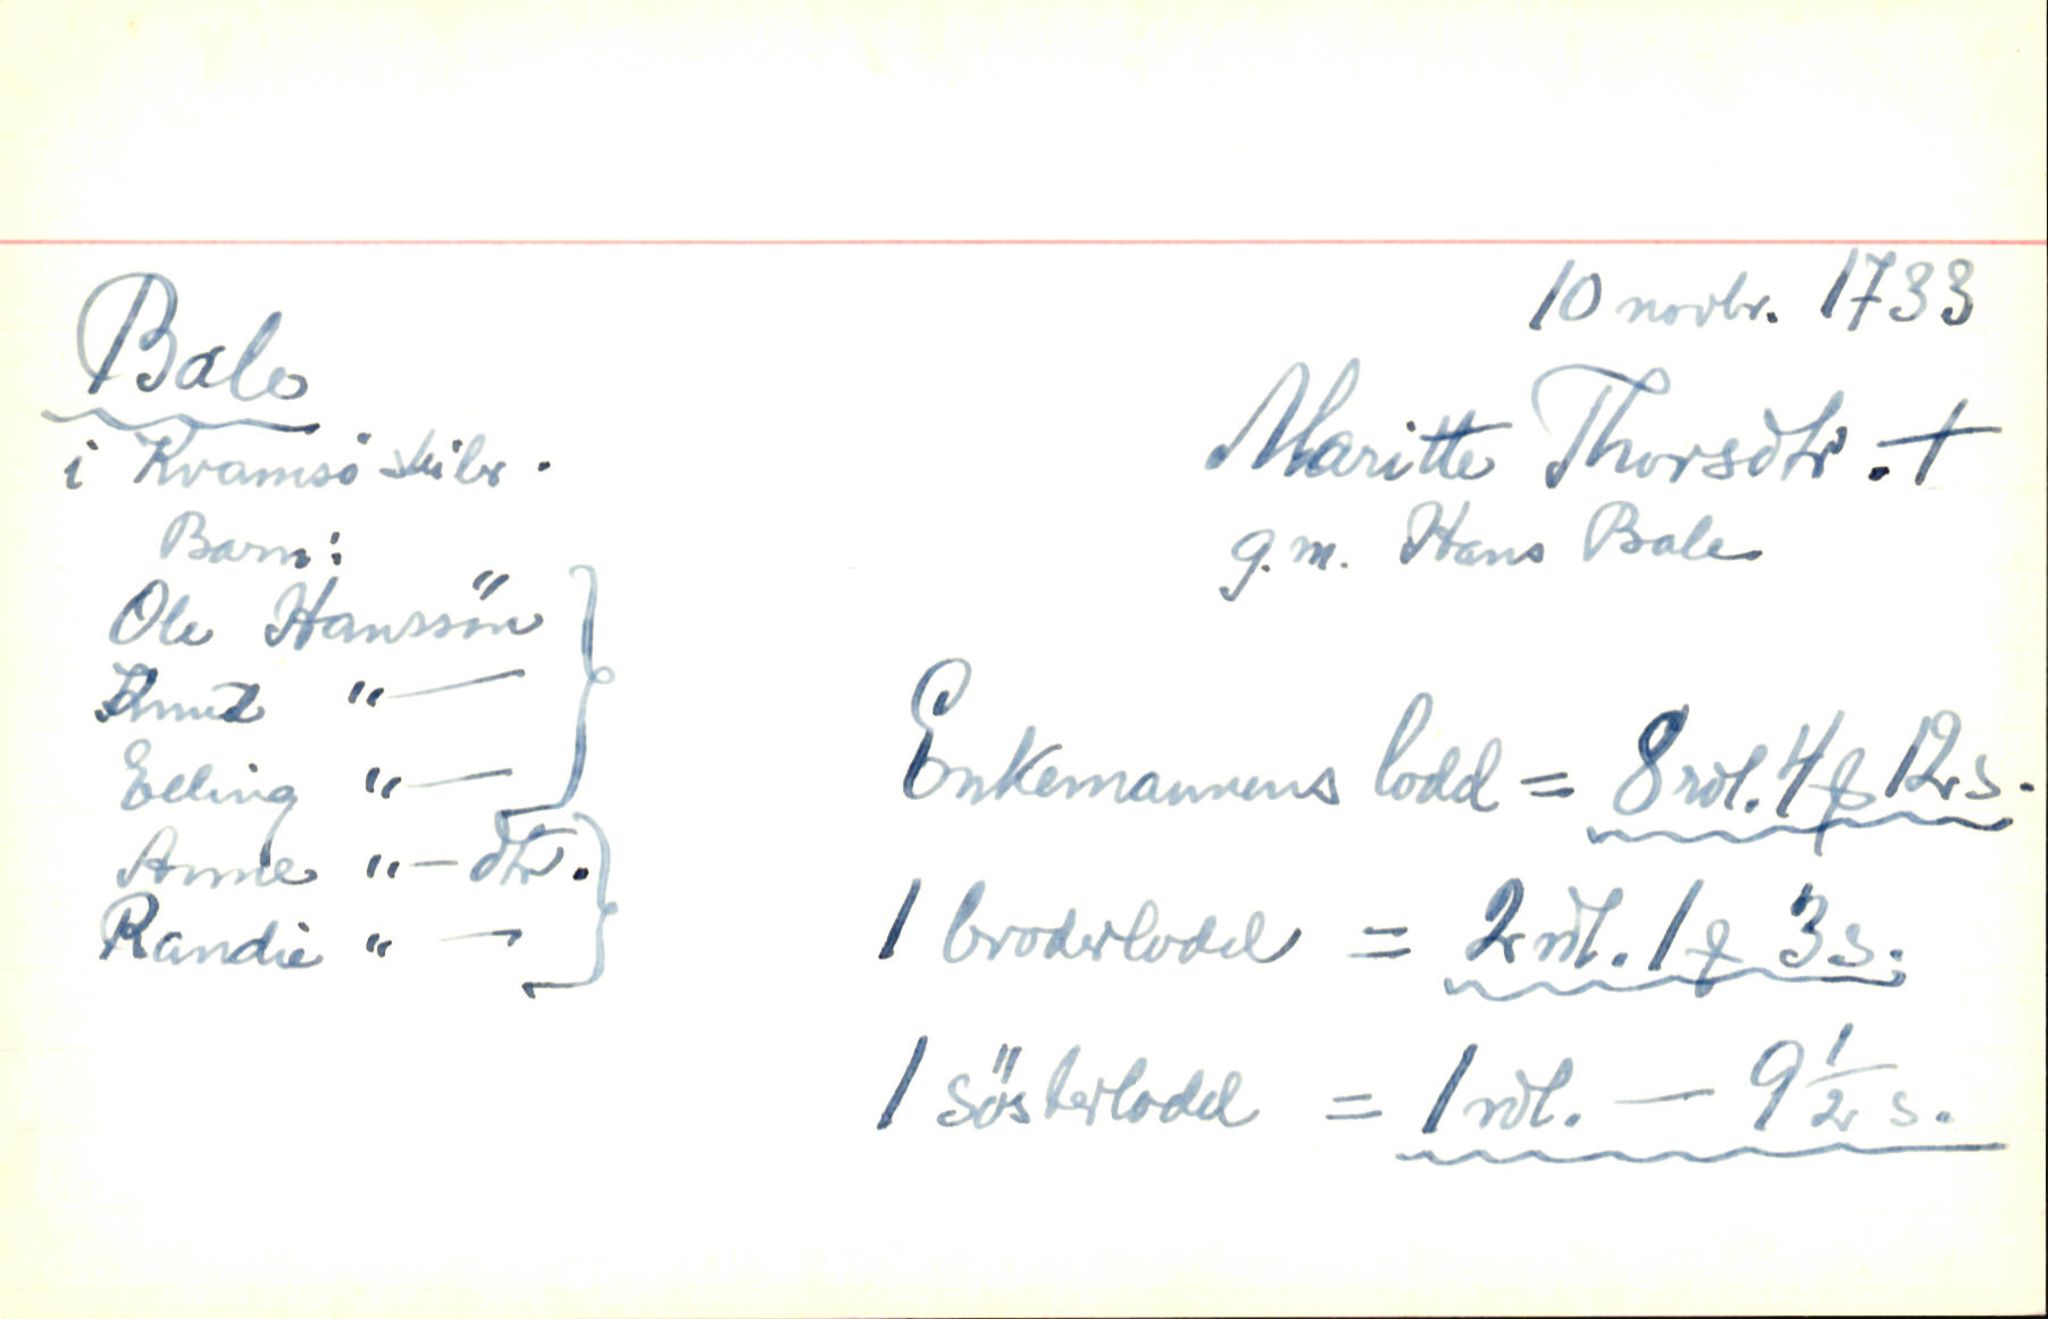 10 novbr. 1733
Bale
i Kvamsö skibr.
Maritte Thorsdtr. †
g.m. Hans Bale
Barn:
Ole Hanssön
Knud " —
Elling " —
Anne " — dtr.
Randie " —
Enkemannens lodd = 8 rdl. 4 ƒ 12 s.
1 broderlodd = 2 rdl. 1 ƒ 3 s.
1 sösterlodd = 1 rdl. — 9 1/2 s.